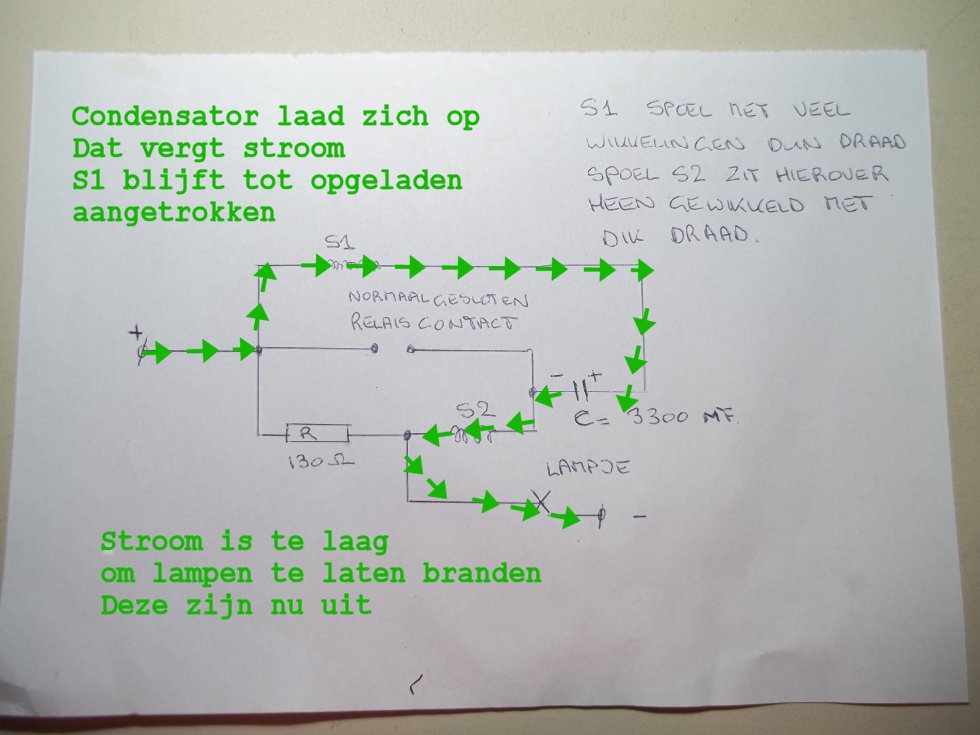 Condensator laad zich op
Dat vergt stroom
S1 blijft tot opgeladen
aangetrokken
S1 SPOEL MET VEEL
WIKKELINGEN DUN DRAAD
SPOEL S2 ZIT HIEROVER
HEEN GEWIKKELD MET
DIK DRAAD.
S1
NORMAAL GESLOTEN
RELAIS CONTACT
+
- +
C= 3300 MF.
S2
R
130 Ω
LAMPJE
-
Stroom is te laag
om lampen te laten branden
Deze zijn nu uit